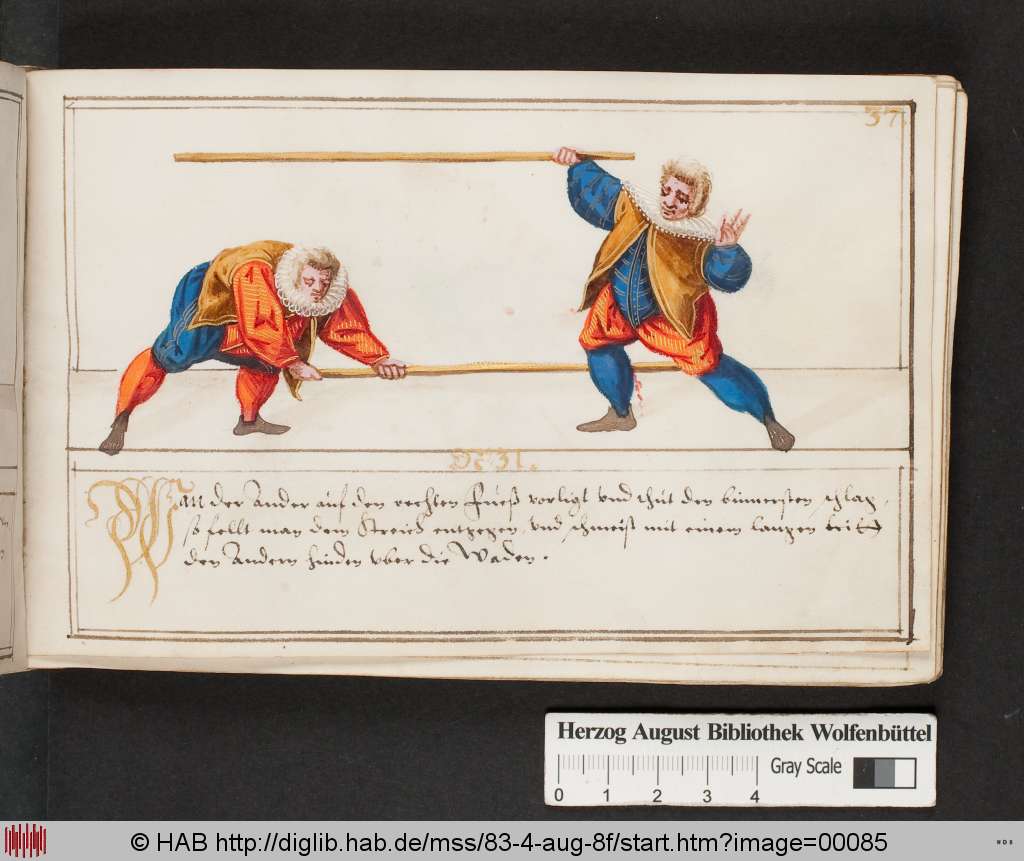 37.
No. 31.
Wan der Ander auf den rechten Fueß vorligt vnd thut den
schlag,
so fellt man dem Streich entgegen, vnd schmeist mit einem langen
den Andern hinden vber die Waden.
Herzog August Bibliothek Wolfenbüttel
Gray Scale
0 1 2 3 4
© HAB http://diglib.hab.de/mss/83-4-aug-8f/start.htm?image=00085